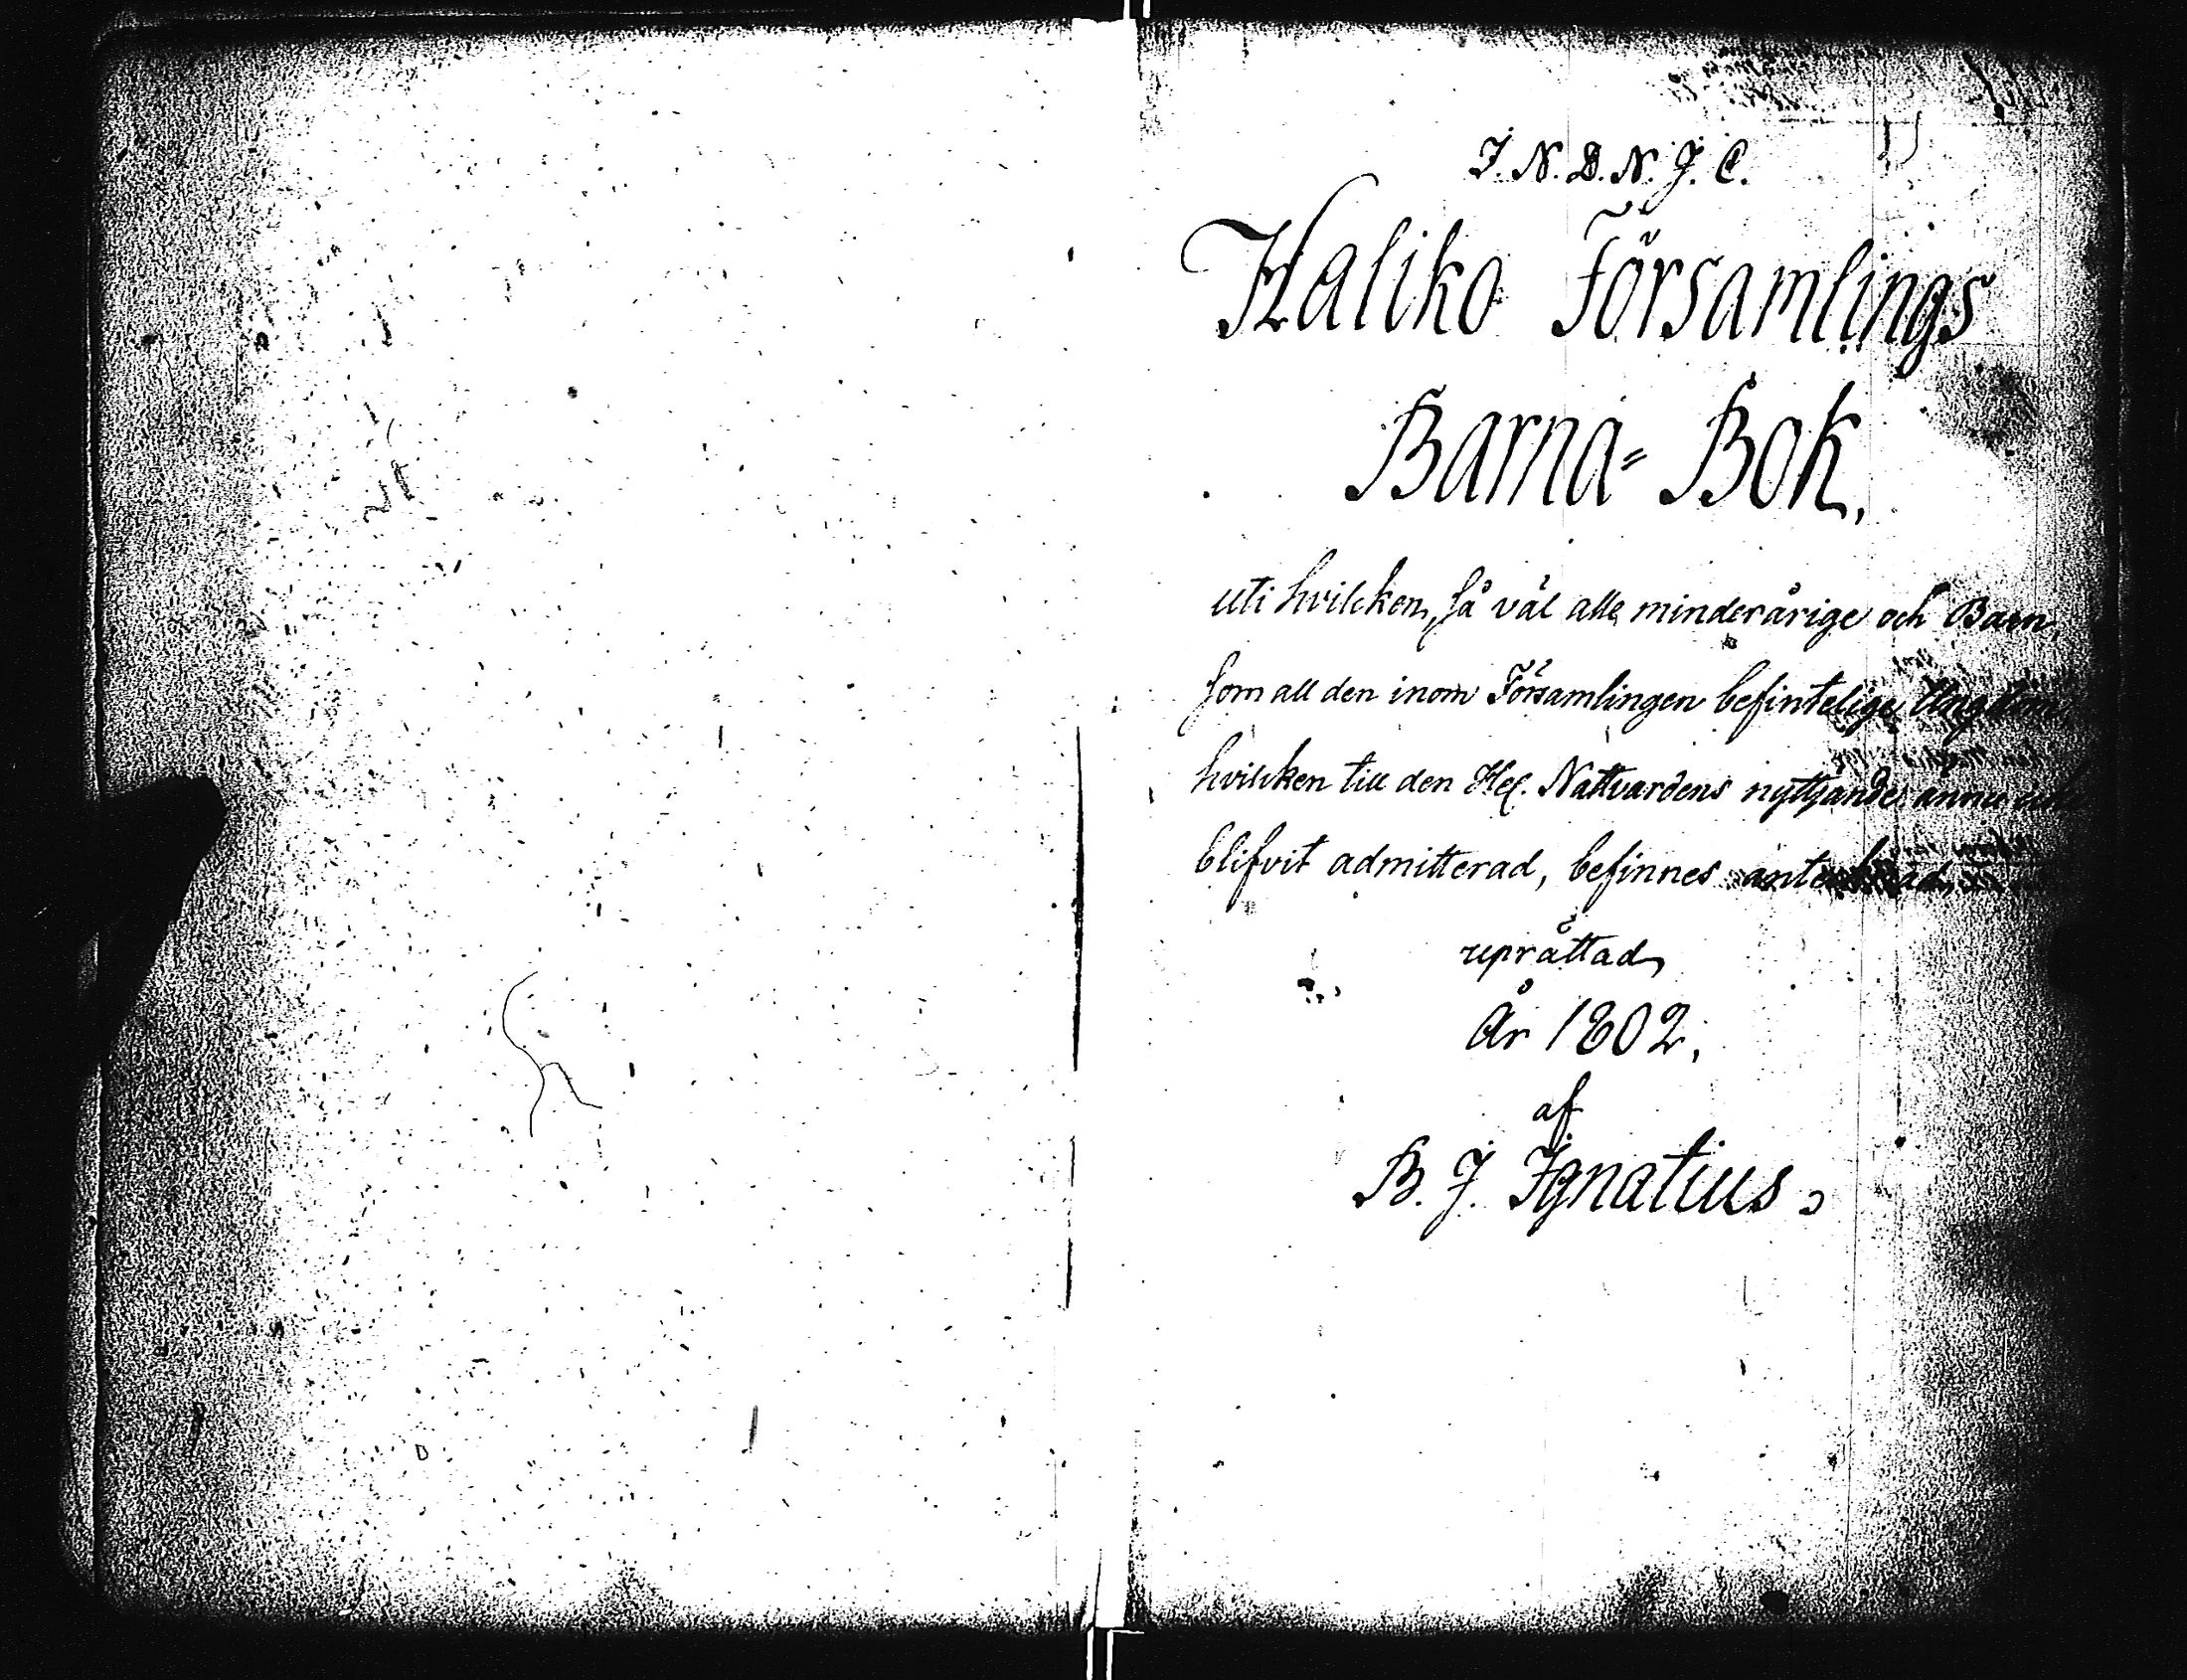 I. N. D. N. J. C.
Haliko Församlings
Barna= Bok,
uti hvilcken, så väl alla minderårige och Barn,
som all den inom Församlingen befintelige Ungdom,
hvilcken till den Hel. Nattvardens nyttjande ännu
blifvit admitterad, befinnes antecknad,
uprättad
År 1802,
af
B. J. Ignatius.